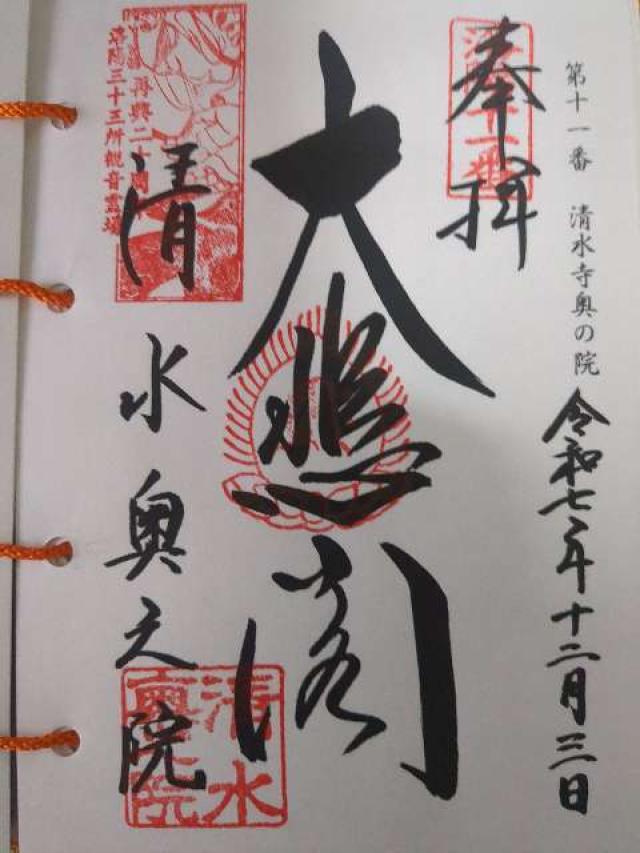 第十一番 清水寺奥の院
令和七年十二月三日
奉拝
大悲閣
清水奥之院
再興二十周年
洛陽三十三所観音霊場
清水
奥院